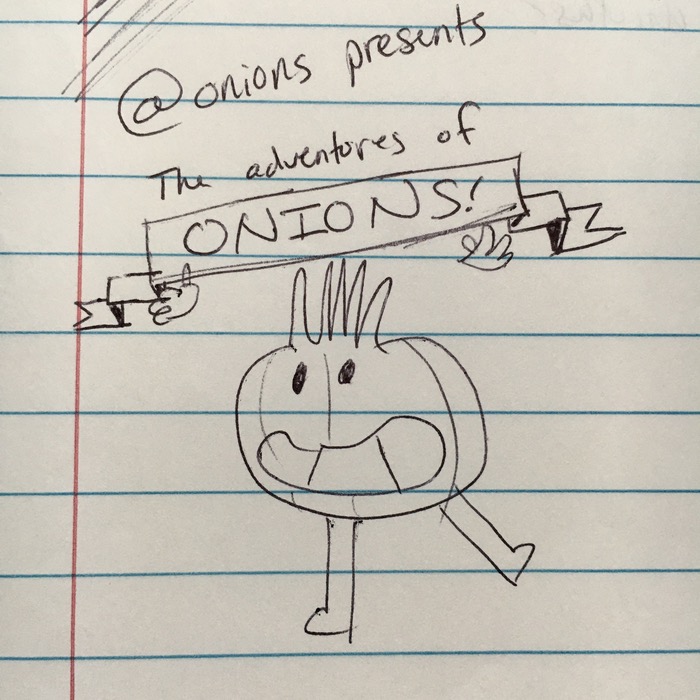 @onions presents
The adventures of
ONIONS!